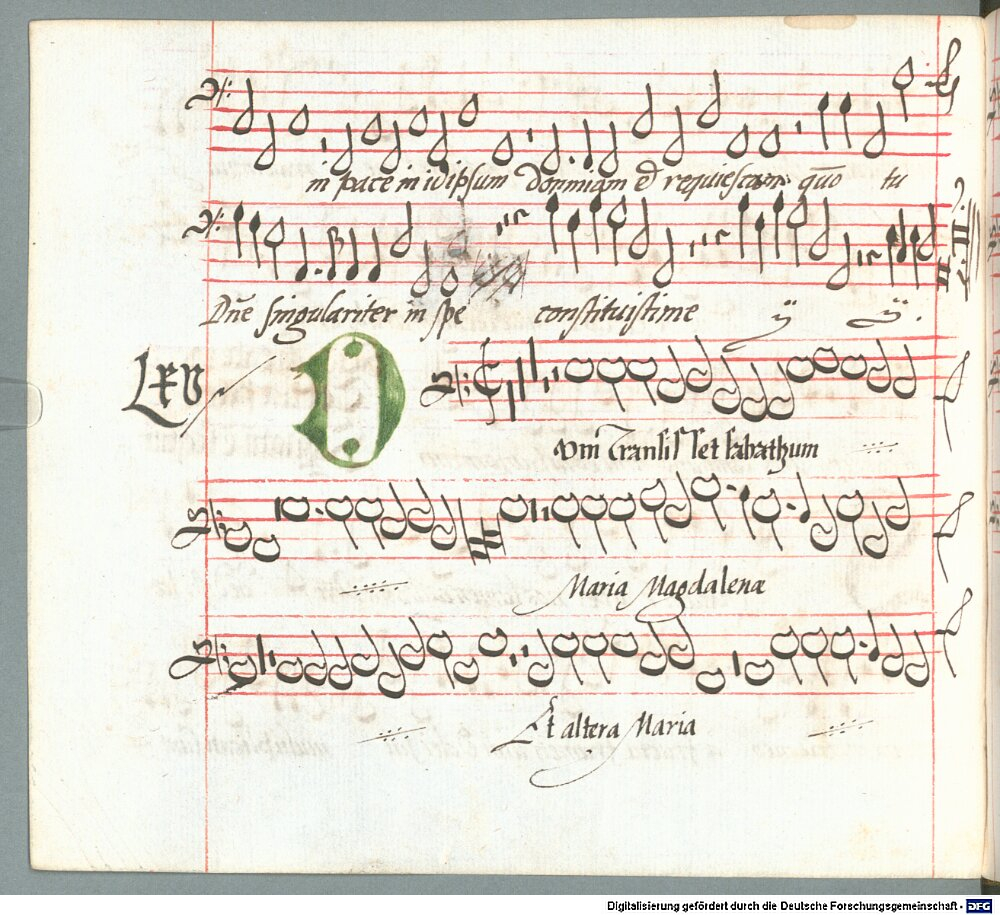 in pace in idipsum dormiam et requiescam quo tu
Dñe singulariter in spe constituisti me ij ij.
Lxv
D
vm Transisset sabathum
Maria Magdalena
Et altera Maria
Digitalisierung gefördert durch die Deutsche Forschungsgemeinschaft - DFG